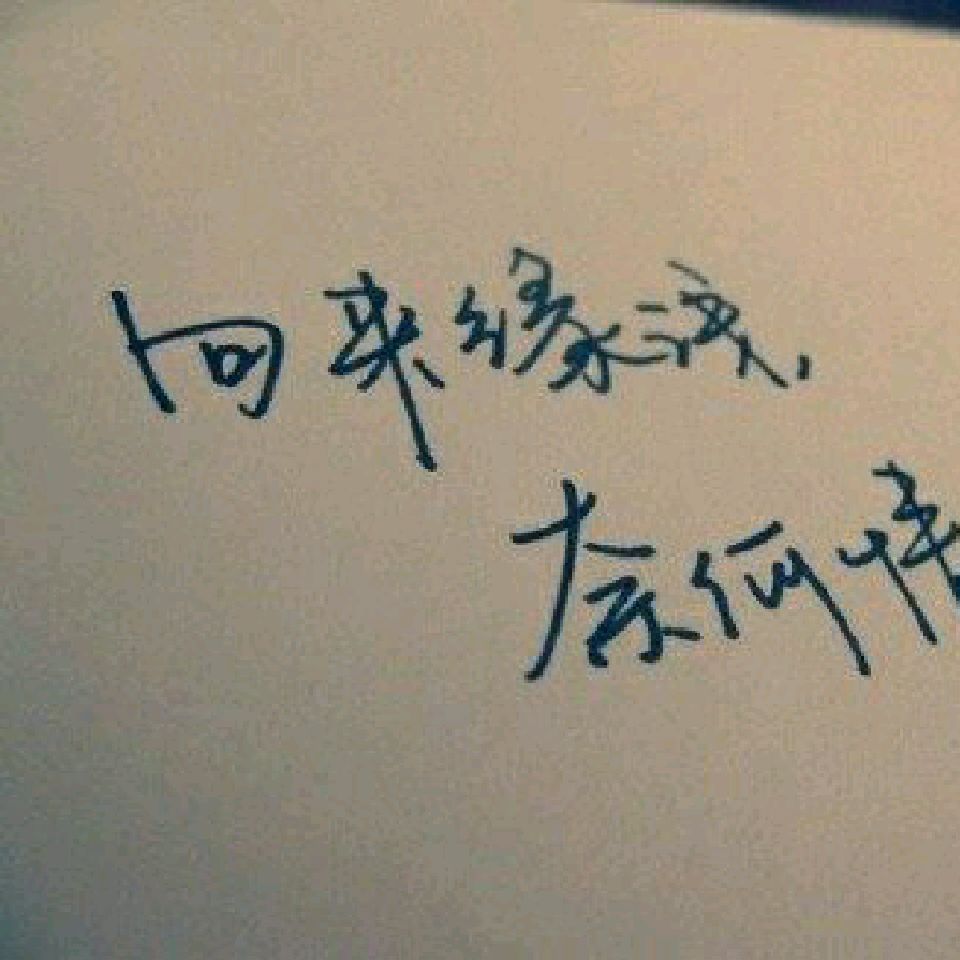 向来缘浅,
奈何情